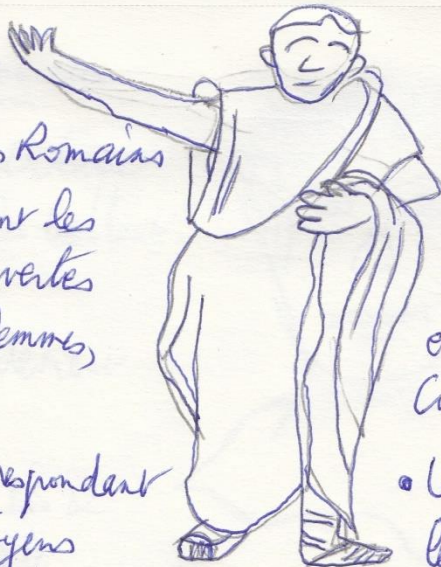 s Romains
nt les
vertes
emmes,
respondant
yens
o
Co
• L
le